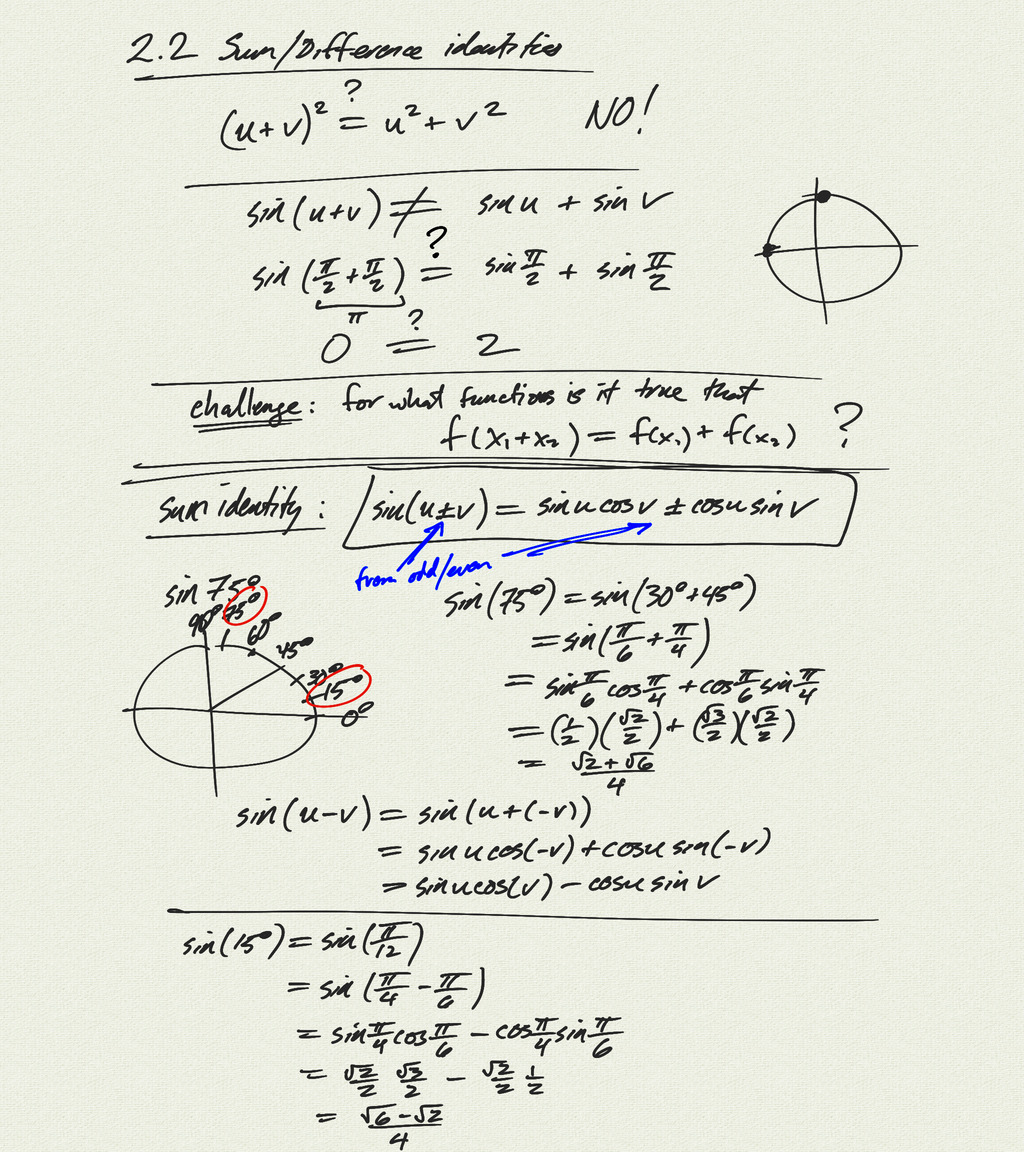 2.2 Sum/Difference identities
(u+v)² ?= u²+v² NO!
sin(u+v) ≠ sin u + sin v
sin(π/2 + π/2) ?= sin π/2 + sin π/2
π
0 ?= 2
challenge: for what functions is it true that
f(x₁+x₂) = f(x₁) + f(x₂) ?
sum identity: sin(u±v) = sin u cos v ± cos u sin v
from odd/even
sin 75°
90° 75° 60° 45° 30° 15° 0°
sin(75°) = sin(30°+45°)
= sin(π/6 + π/4)
= sin π/6 cos π/4 + cos π/6 sin π/4
= (1/2)(√2/2) + (√3/2)(√2/2)
= (√2+√6)/4
sin(u-v) = sin(u+(-v))
= sin u cos(-v) + cos u sin(-v)
= sin u cos(v) - cos u sin v
sin(15°) = sin(π/12)
= sin(π/4 - π/6)
= sin π/4 cos π/6 - cos π/4 sin π/6
= √2/2 √3/2 - √2/2 1/2
= (√6-√2)/4